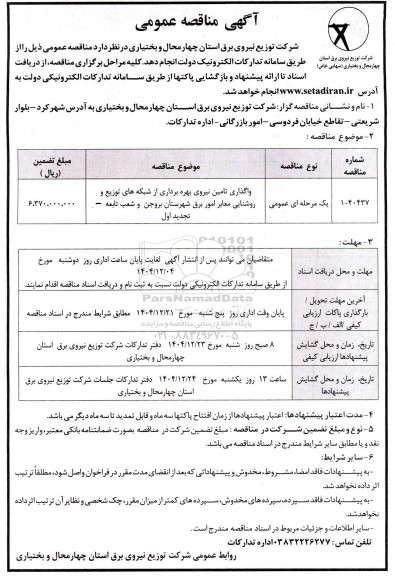 آگهی مناقصه عمومی
شرکت توزیع نیروی برق استان
چهارمحال و بختیاری (سهامی خاص)
شرکت توزیع نیروی برق استان چهارمحال و بختیاری در نظر دارد مناقصه عمومی ذیل را از
طریق سامانه تدارکات الکترونیکی دولت انجام دهد. کلیه مراحل برگزاری مناقصه، از دریافت
اسناد تا ارائه پیشنهاد و بازگشایی پاکتها از طریق سامانه تدارکات الکترونیکی دولت به
آدرس www.setadiran.ir انجام خواهد شد.
۱- نام و نشانی مناقصه گزار: شرکت توزیع نیروی برق استان چهارمحال و بختیاری به آدرس شهرکرد-بلوار
شریعتی- تقاطع خیابان فردوسی-امور بازرگانی-اداره تدارکات.
۲- موضوع مناقصه :
شماره مناقصه
نوع مناقصه
موضوع مناقصه
مبلغ تضمین (ریال )
۱-۴۰۴۳۷
یک مرحله ای عمومی
واگذاری تامین نیروی بهره برداری از شبکه های توزیع و
روشنایی معابر امور برق شهرستان بروجن و شعب تابعه –
تجدید اول
۶,۳۷۰,۰۰۰,۰۰۰
۳- مهلت :
مهلت و محل دریافت اسناد
متقاضیان می توانند پس از انتشار آگهی لغایت پایان ساعت اداری روز دوشنبه مورخ
۱۴۰۴/۱۲/۰۴
از طریق سامانه تدارکات الکترونیکی دولت نسبت به ثبت نام و دریافت اسناد مناقصه اقدام نمایند.
آخرین مهلت تحویل /
بارگذاری پاکات ارزیابی
کیفی /الف / ب / ج
پایان وقت اداری روز پنج شنبه مورخ ۱۴۰۴/۱۲/۲۱ مطابق شرایط مندرج در اسناد مناقصه
تاریخ، زمان و محل گشایش
پیشنهادها ارزیابی کیفی
۸ صبح روز شنبه مورخ ۱۴۰۴/۱۲/۲۳ دفتر تدارکات شرکت توزیع نیروی برق استان
چهارمحال و بختیاری
تاریخ، زمان و محل گشایش
پیشنهادها
ساعت ۱۳ روز یکشنبه مورخ ۱۴۰۴/۱۲/۲۴ دفتر تدارکات جلسات شرکت توزیع نیروی برق
استان چهارمحال و بختیاری
ParsNamadData
پایگاه اطلاع رسانی مناقصه و مزایده
۰۲۱-۸۸۳۴۹۶۷۰-۵
۴- مدت اعتبار پیشنهادها: اعتبار پیشنهادها از زمان افتتاح پاکتها سه ماه و قابل تمدید تا سه ماه دیگر می باشد.
۵- نوع و مبلغ تضمین شرکت در مناقصه : مبلغ تضمین شرکت در مناقصه بصورت ضمانتنامه بانکی معتبر، واریز وجه
نقد و یا مطابق سایر شرایط مندرج در اسناد مناقصه می باشد.
۶- سایر شرایط:
-به پیشنهادات فاقد امضا، مشروط، مخدوش و پیشنهاداتی که بعد از انقضای مدت مقرر در فراخوان واصل شود، مطلقاً ترتیب
اثر داده نخواهد شد.
-به پیشنهادات فاقد سپرده، سپرده های مخدوش، سپرده های کمتر از میزان مقرر، چک شخصی و نظایر آن ترتیب اثر داده
نخواهد شد.
-سایر اطلاعات و جزئیات مربوط در اسناد مناقصه مندرج است.
تلفن تماس: ۰۳۸۳۲۲۲۶۲۷۷ اداره تدارکات
روابط عمومی شرکت توزیع نیروی برق استان چهارمحال و بختیاری